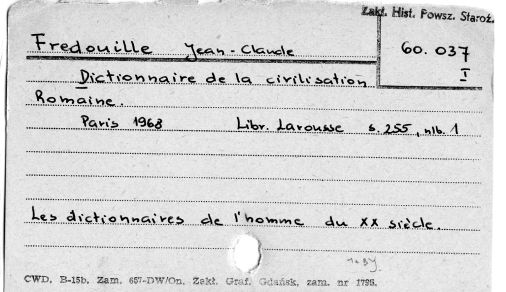 Zakł. Hist. Powsz. Staroż.
Fredouille Jean-Claude
60.037
I
Dictionnaire de la civilisation
Romaine.
Paris 1968 Libr. Larousse s. 255, nlb. 1
Les dictionnaires de l'homme du XX siècle.
CWD, B-15b, Zam. 657-DW/On, Zakł. Graf. Gdańsk, zam. nr 1795.